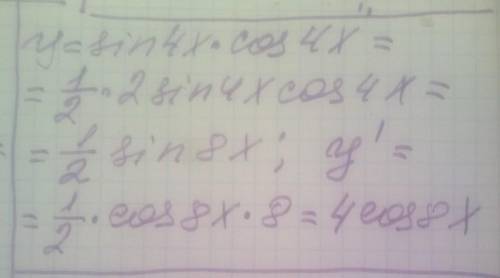 y = sin4x · cos4x =
= 1/2 · 2sin4xcos4x =
= 1/2 sin8x; y' =
= 1/2 · cos8x · 8 = 4cos8x